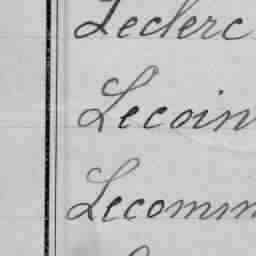 Leclerc
Lecoin
Lecomm